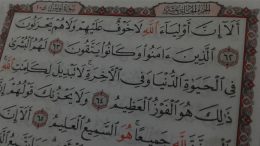 أَلَآ إِنَّ أَوْلِيَآءَ ٱللَّهِ لَا خَوْفٌ عَلَيْهِمْ وَلَا هُمْ يَحْزَنُونَ
٦٢ ٱلَّذِينَ ءَامَنُوا۟ وَكَانُوا۟ يَتَّقُونَ ٦٣ لَهُمُ ٱلْبُشْرَىٰ
فِى ٱلْحَيَوٰةِ ٱلدُّنْيَا وَفِى ٱلْـَٔاخِرَةِ لَا تَبْدِيلَ لِكَلِمَٰتِ ٱللَّهِ
ذَٰلِكَ هُوَ ٱلْفَوْزُ ٱلْعَظِيمُ ٦٤ وَلَا يَحْزُنكَ قَوْلُهُمْ إِنَّ
ٱلْعِزَّةَ لِلَّهِ جَمِيعًا هُوَ ٱلسَّمِيعُ ٱلْعَلِيمُ ٦٥ أَلَآ إِنَّ